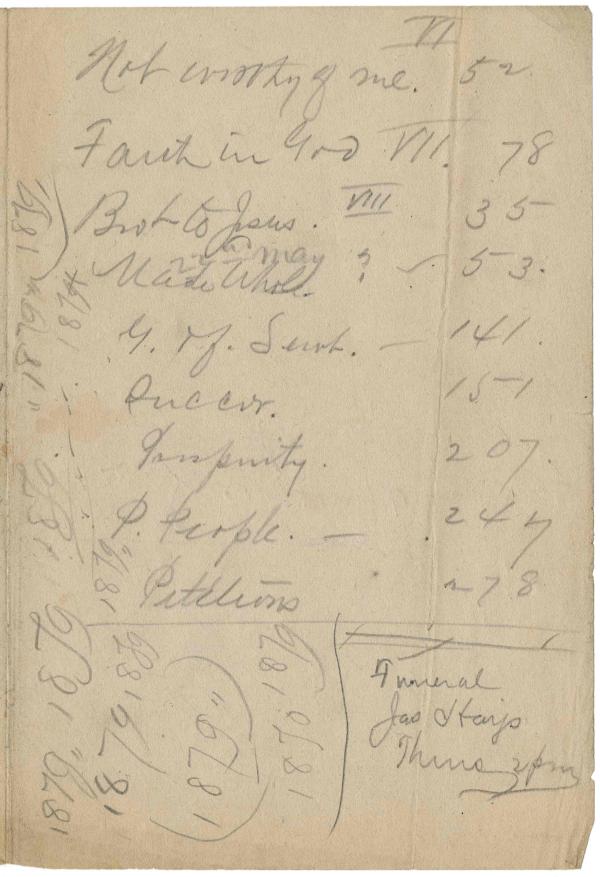 VI
Not worthy of me. 52
Faith in God VII. 78
Brot to Jesus. VIII 35
may
Made Whole. ? ✓ 53.
G. of. — 141.
Succor. 151
207.
P. People. — 247
Petitions 278
Funeral
Jas Hays
Thurs 2 pm
1879
1879
1874
1879
1879
1879"
1879
1879 1879
(1879")
1879